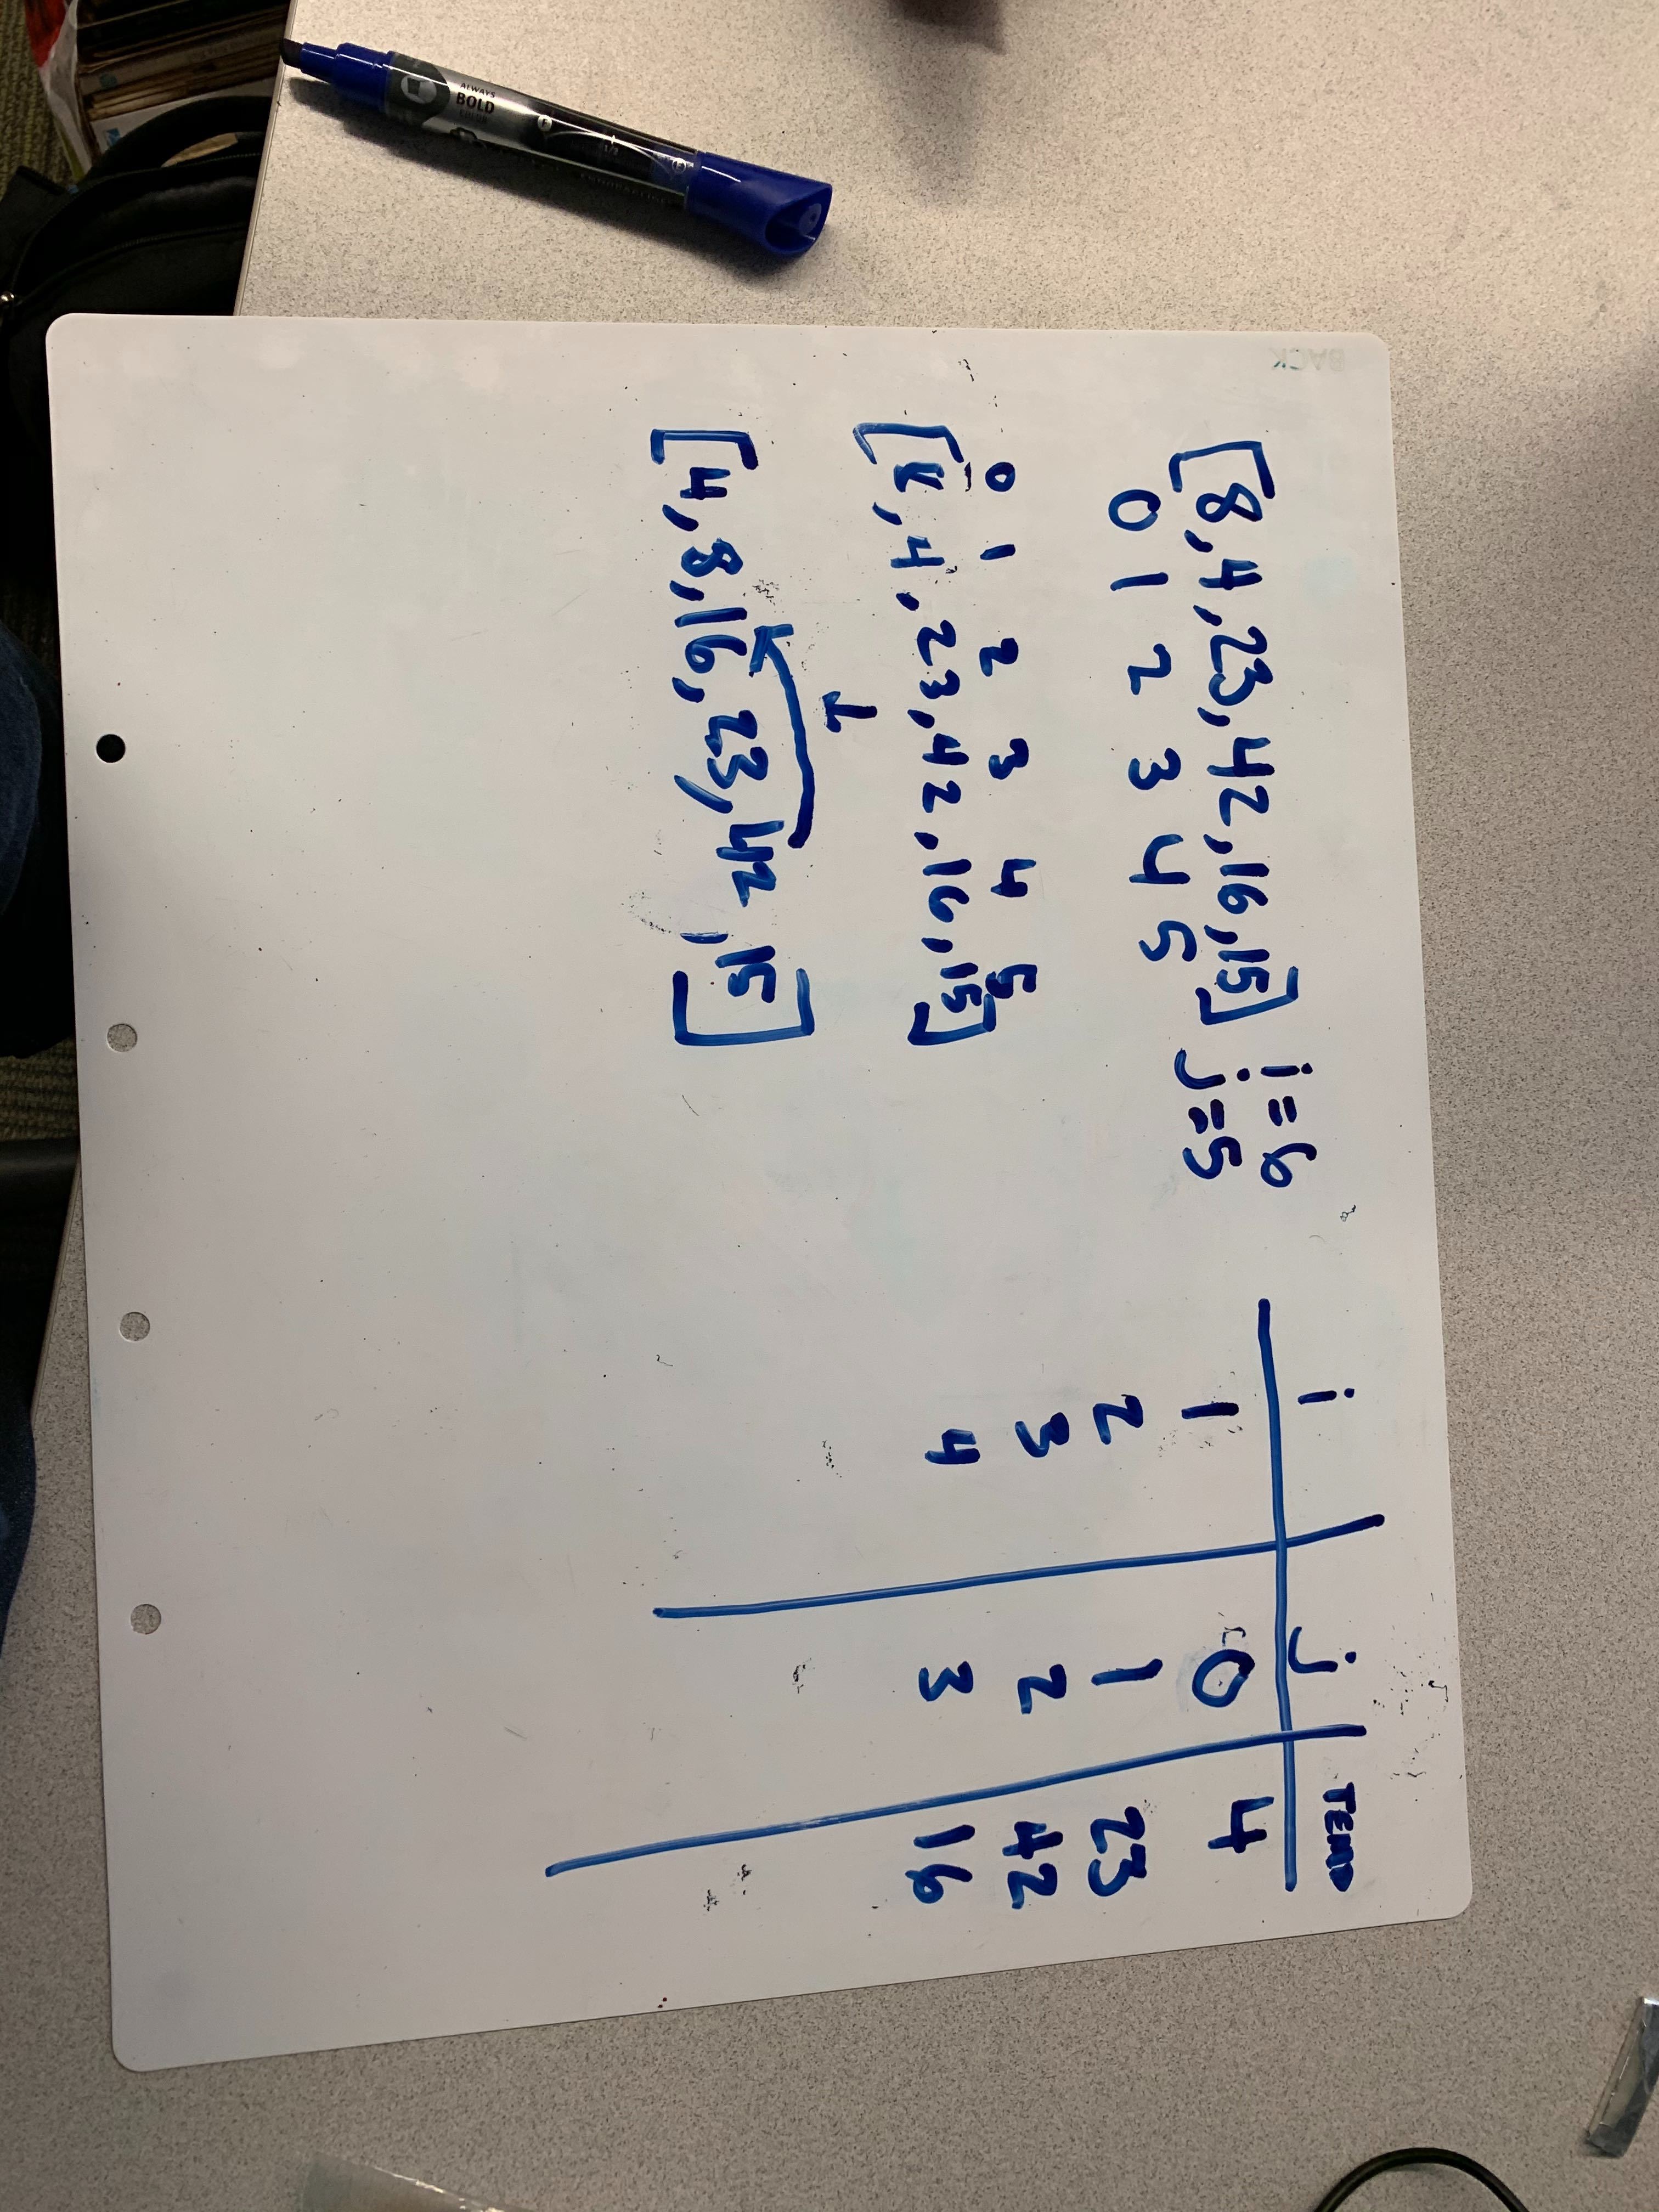 ALWAYS
BOLD
BACK
[8,4,23,42,16,15] i=6
0 1 2 3 4 5 j=5
0 1 2 3 4 5
4,23,42,16,15]
[4,8,16,23,42,15]
i j TEMP
1 0 4
2 1 23
3 2 42
4 3 16